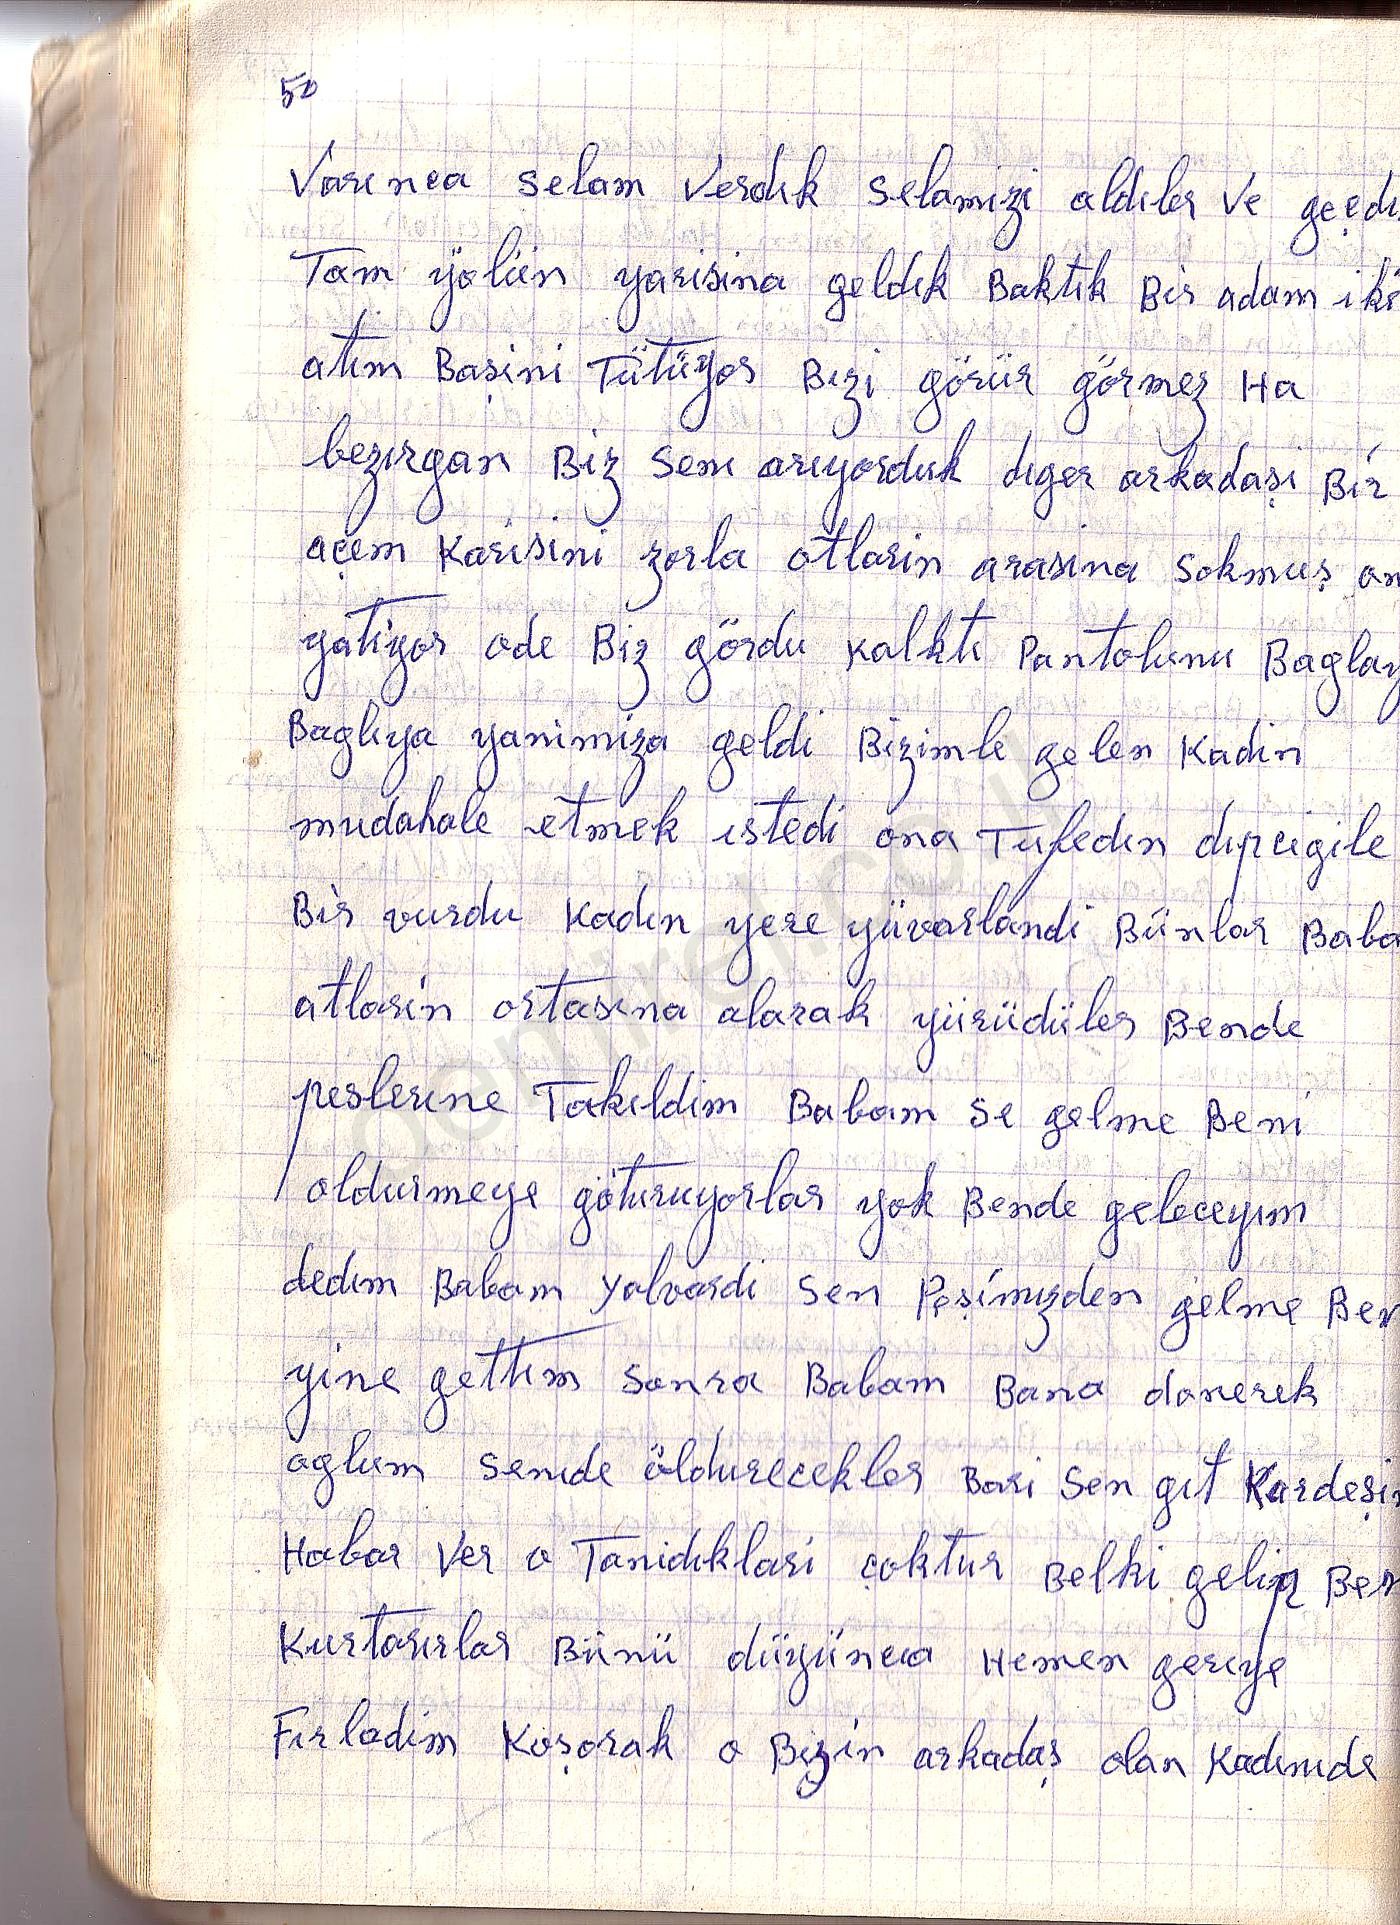 50
Varınca selam verdık selamizi aldıler ve geçdı
Tam yölün yarisina geldık Baktık Bir adam iki
atım Başini Tütüyor Bızi görür görmez Ha
bezırgan Biz senı arıyorduk dıger arkadaşi Bir
açem Karisini zorla otlarin arasına sokmuş
yatiyor ode Biz gördu kalktı Pantolunu Baglay
Baglıya yanimiza geldi Bizimle gelen Kadin
mudahale etmek ıstedi ona Tufedın dıpcigile
Bir vurdu Kadın yere yüvarlandi Bünlar Baba
atlarin ortasına alarak yürüdüler Bende
peslerıne Takıldim Babam se gelme Beni
oldurmeye göturuyorlar yok Bende geleceyım
dedım Babam yalvardi Sen Peşimızden gelme Ben
yine gettım Sonra Babam Bana donerek
oglum senıde öldurecekler Bari Sen gıt Kardeşin
Habar Ver o Tanidıklari çoktur Belki gelip Ben
Kurtarırlar Bünü düyünca Hemen gerıye
Fırladim Koşorak o Bizin arkadaş olan Kadınıde
demirel.co.il